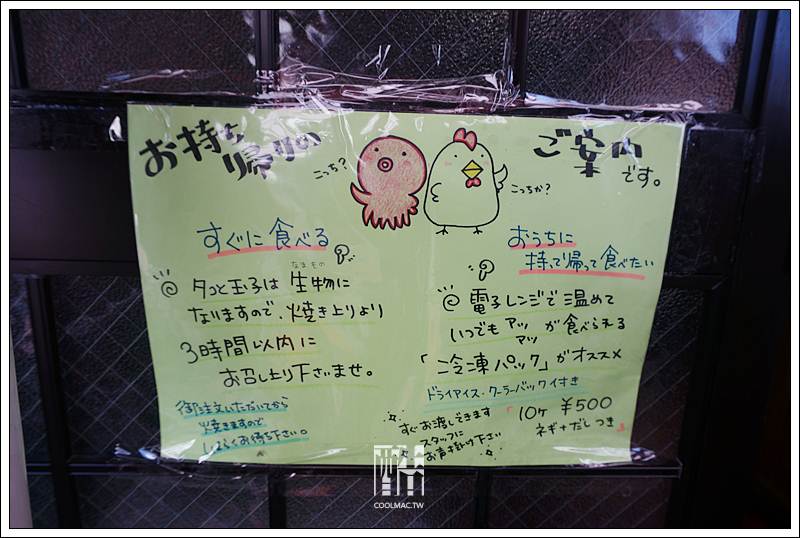 お持ち帰りの
ご案内です。
こっち?
こっちか?
すぐに食べる
タコと玉子は生物に
なまもの
なりますので、焼き上りより
3時間以内に
お召し上り下さいませ。
御注文いただいてから
焼きますので
しばらくお待ち下さい。
おうちに
持って帰って食べたい
電子レンジで温めて
いつでもアッアッが食べられる
「冷凍パック」がオススメ
ドライアイス・クーラーバック付き
10ヶ ¥500
ネギ+だしつき
すぐお渡しできます
スタッフに
お声掛け下さい
COOLMAC.TW